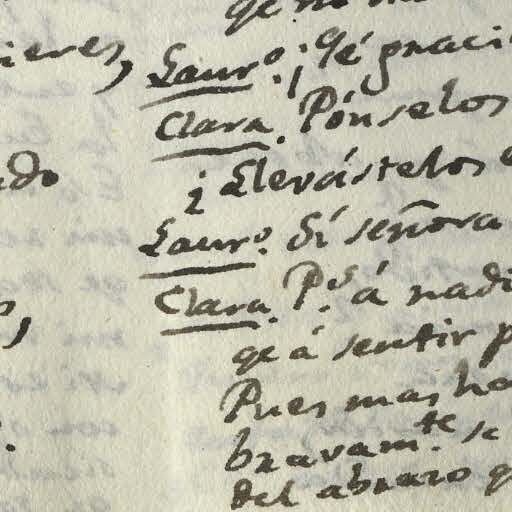 qe no
ieres,
Laur.º ¡Qé graci
Clara. Pónselos
ado
¿Llevástelos
Laur.º Sí señora
Clara. P.s á nadi
qe á sentir p
Pues mas ha
bravam.te se
del abrazo q